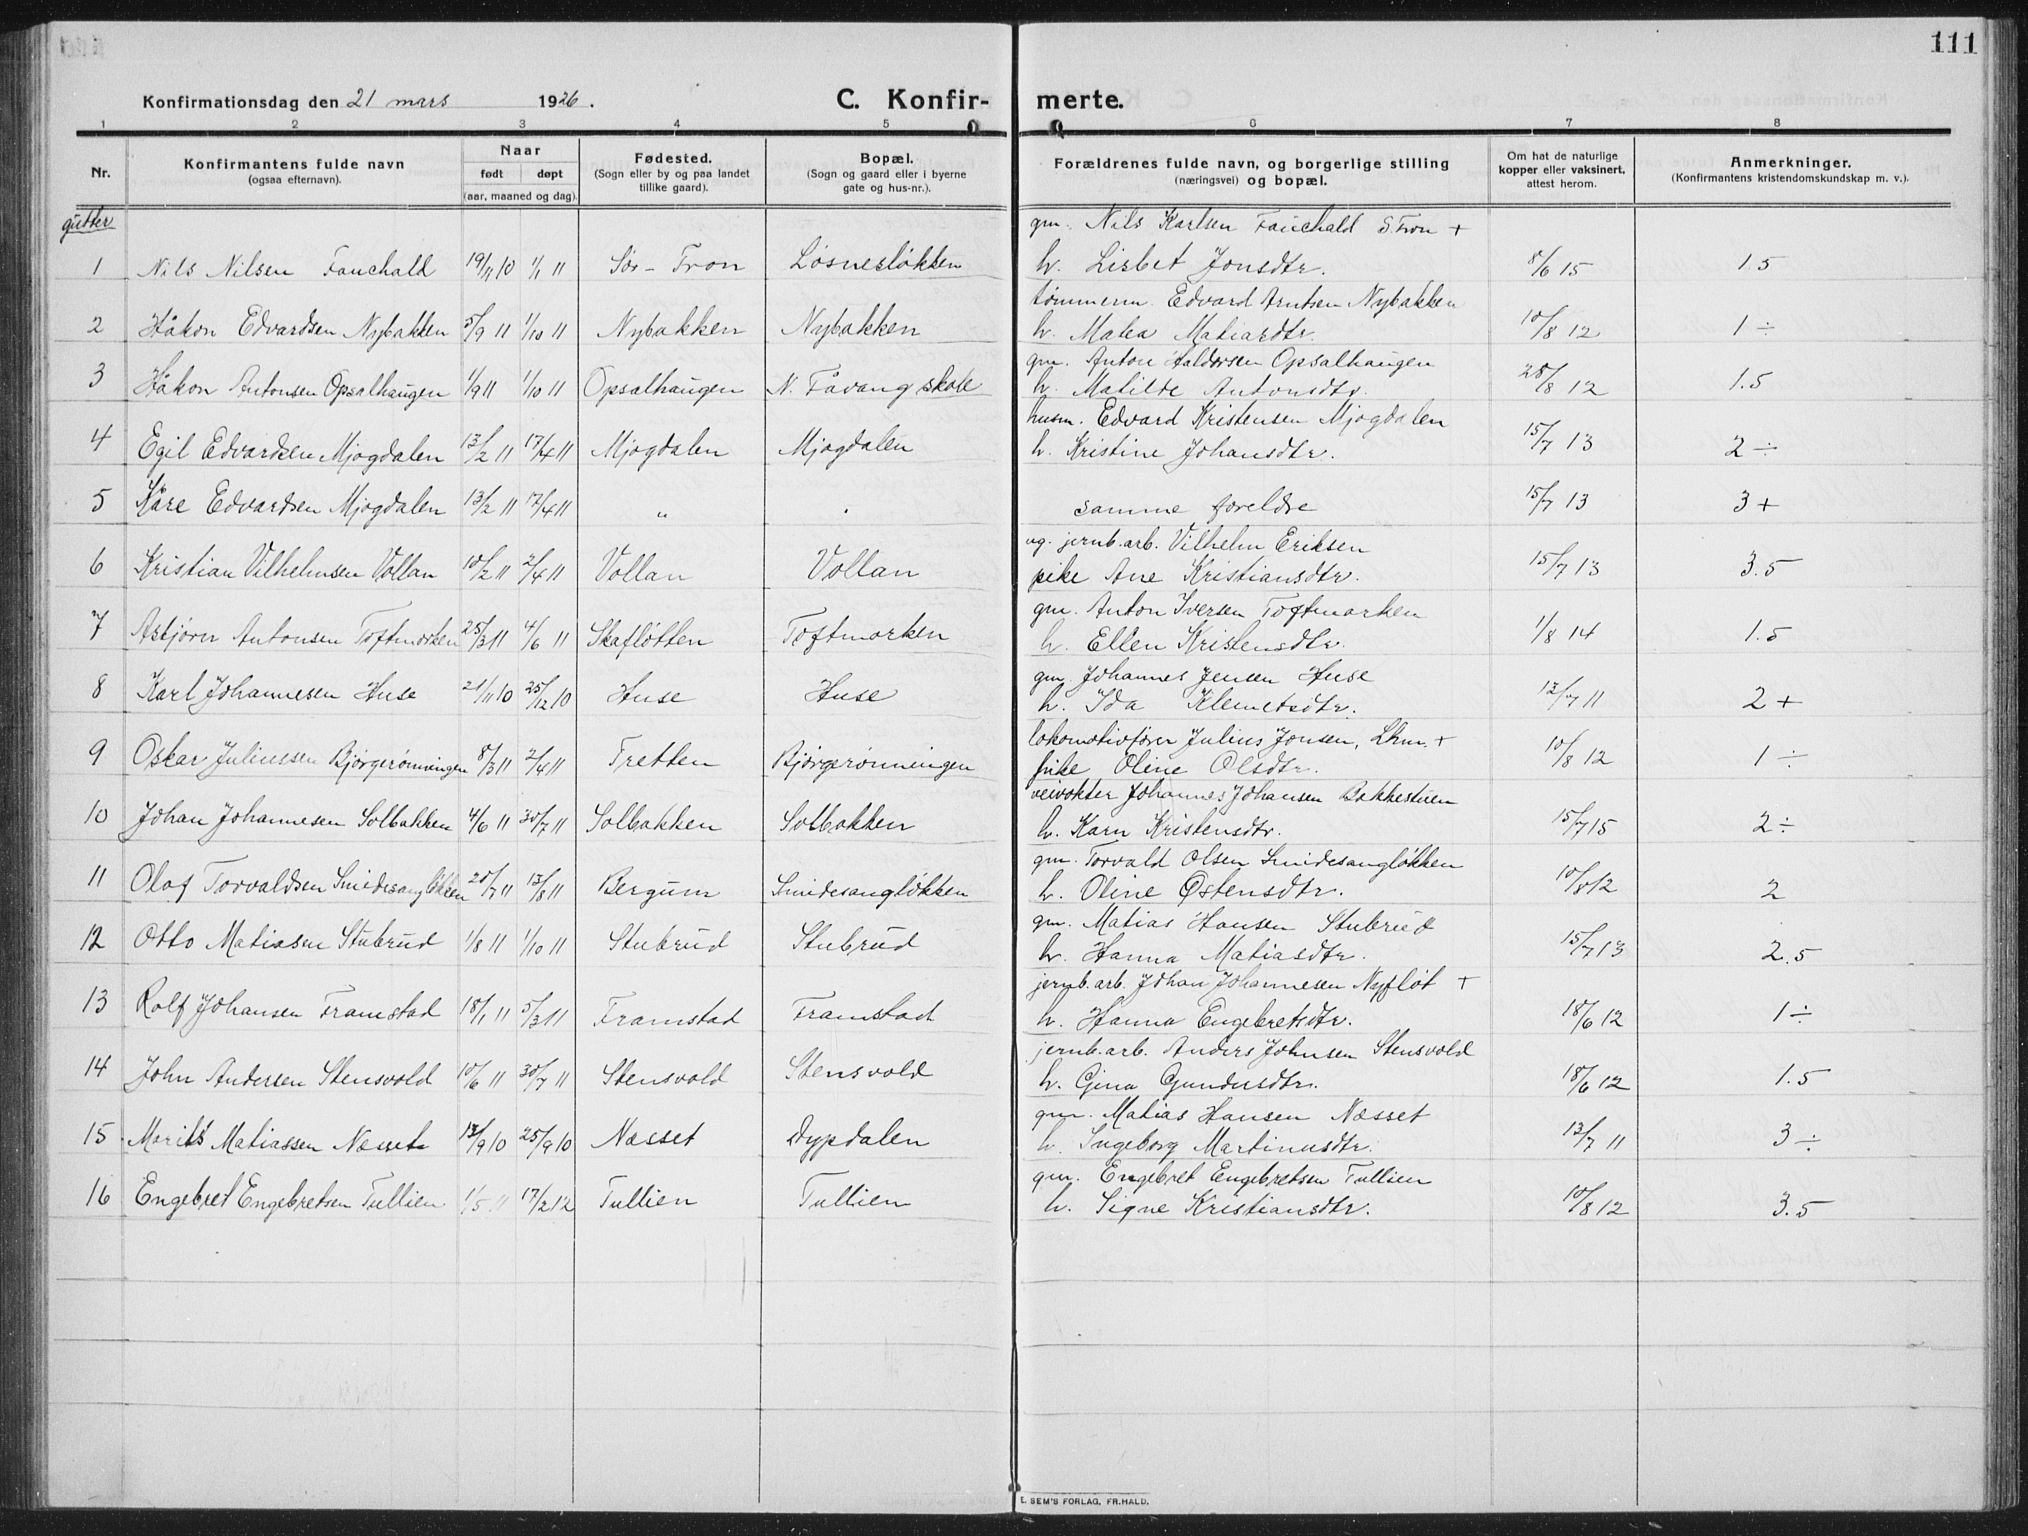 111
Konfirmationsdag den 21 mars 1926.
C. Konfir- merte.
1 2 3 4 5 6 7 8
Nr.
Konfirmantens fulde navn
(ogsaa efternavn).
Naar
født døpt
(aar, maaned og dag).
Fødested.
(Sogn eller by og paa landet
tillike gaard).
Bopæl.
(Sogn og gaard eller i byerne
gate og hus-nr.).
Forældrenes fulde navn, og borgerlige stilling
(næringsvei) og bopæl.
Om hat de naturlige
kopper eller vaksinert,
attest herom.
Anmerkninger.
(Konfirmantens kristendomskundskap m. v.).
gutter
gm. Nils Karlsen Fauchald S. Fron +
1 Nils Nilsen Fauchald 19/11 10 1/1 11 Sør-Fron Løsnesløkken h. Lisbet Jonsdtr. 8/6 15 1.5
tømmerm. Edvard Arntsen Nybakken
2 Håkon Edvardsen Nybakken 5/9 11 1/10 11 Nybakken Nybakken h. Malea Matiasdtr. 10/8 12 1 ÷
gm. Anton Haldorsen Opsalhaugen
3 Håkon Antonsen Opsalhaugen 1/9 11 1/10 11 Opsalhaugen N. Fåvang skole h. Matilde Antonsdtr. 28/8 12 1.5
husm. Edvard Kristensen Mjogdalen
4 Egil Edvardsen Mjogdalen 13/2 11 17/4 11 Mjogdalen Mjogdalen h. Kristine Johansdtr. 15/7 13 2 ÷
5 Kåre Edvardsen Mjogdalen 13/2 11 17/4 11 „ . samme foreldre 15/7 13 3 +
ug. jernb.arb. Vilhelm Eriksen
6 Kristian Vilhelmsen Vollan 10/2 11 2/4 11 Vollan Vollan pike Ane Kristiansdtr. 15/7 13 3.5
gm. Anton Iversen Toftmarken
7 Asbjørn Antonsen Toftmarken 25/3 11 4/6 11 Skafløtten Toftmarken h. Ellen Kristensdtr. 1/8 14 1.5
gm. Johannes Jensen Huse
8 Karl Johannesen Huse 21/11 10 25/12 10 Huse Huse h. Ida Klemetsdtr. 12/7 11 2 +
lokomotivfører Julius Jonsen, Lhm. +
9 Oskar Juliussen Bjørgerønningen 8/3 11 2/4 11 Tretten Bjørgerønningen pike Oline Olsdtr. 10/8 12 1 ÷
veivokter Johannes Johansen Bakkestuen
10 Johan Johannesen Solbakken 4/6 11 30/7 11 Solbakken Solbakken h. Karn Kristensdtr. 15/7 15 2 ÷
gm. Torvald Olsen Smidesangløkken
11 Olaf Torvaldsen Smidesangløkken 20/7 11 13/8 11 Bergum Smidesangløkken h. Oline Østensdtr. 10/8 12 2
gm. Matias Hansen Stubrud
12 Otto Matiasen Stubrud 1/8 11 1/10 11 Stubrud Stubrud h. Hanna Matiasdtr. 15/7 13 2.5
jernb.arb. Johan Johannesen Nyfløt +
13 Rolf Johansen Framstad 18/1 11 5/3 11 Framstad Framstad h. Hanna Engebretsdtr. 18/6 12 1 ÷
jernb.arb. Anders Johnsen Stensvold
14 John Andersen Stensvold 10/6 11 30/7 11 Stensvold Stensvold h. Gina Gundusdtr. 18/6 12 1.5
gm. Matias Hansen Næsset
15 Morits Matiassen Næsset 12/9 10 25/9 10 Næsset Dypdalen h. Ingeborg Martinusdtr. 12/7 11 3 ÷
gm. Engebret Engebretsen Tullien
16 Engebret Engebretsen Tullien 1/5 11 17/2 12 Tullien Tullien h. Signe Kristiansdtr. 10/8 12 3.5
E. SEM'S FORLAG, FR.HALD.